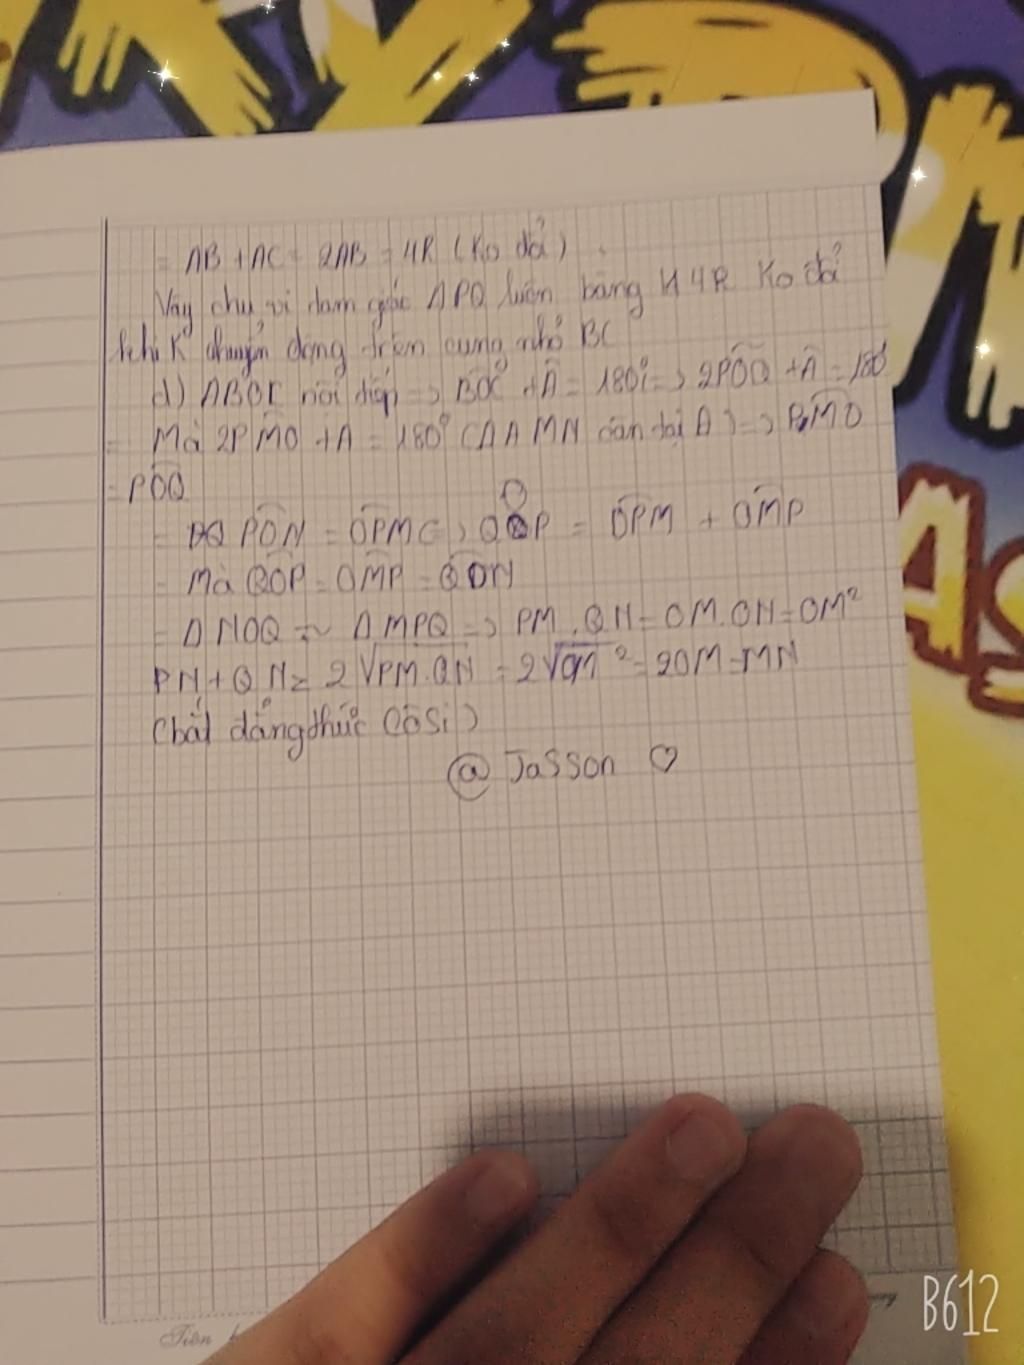 = AB + AC = 2AB = 4R (Ko đổi)
Vậy chu vi tam giác APQ luôn bằng 4R Ko đổi
khi K chuyển động trên cung nhỏ BC
d) ABOC nội tiếp => BÔC + Â = 180° => 2PÔQ + Â = 180°
= Mà 2PM̂O + Â = 180° (Δ AMN cân tại A) => PM̂O
= PÔQ
= PÔN = OP̂M QÔP = OP̂M + OM̂P
= Mà QÔP = OM̂P = QÔN
= Δ NOQ ~ Δ MPQ => PM.QN = OM.ON = OM²
PN + QN ≥ 2√PM.QN = 2√OM² = 2OM = MN
(bất đẳng thức Côsi)
@ JaSSon ♡
Tiên
B612